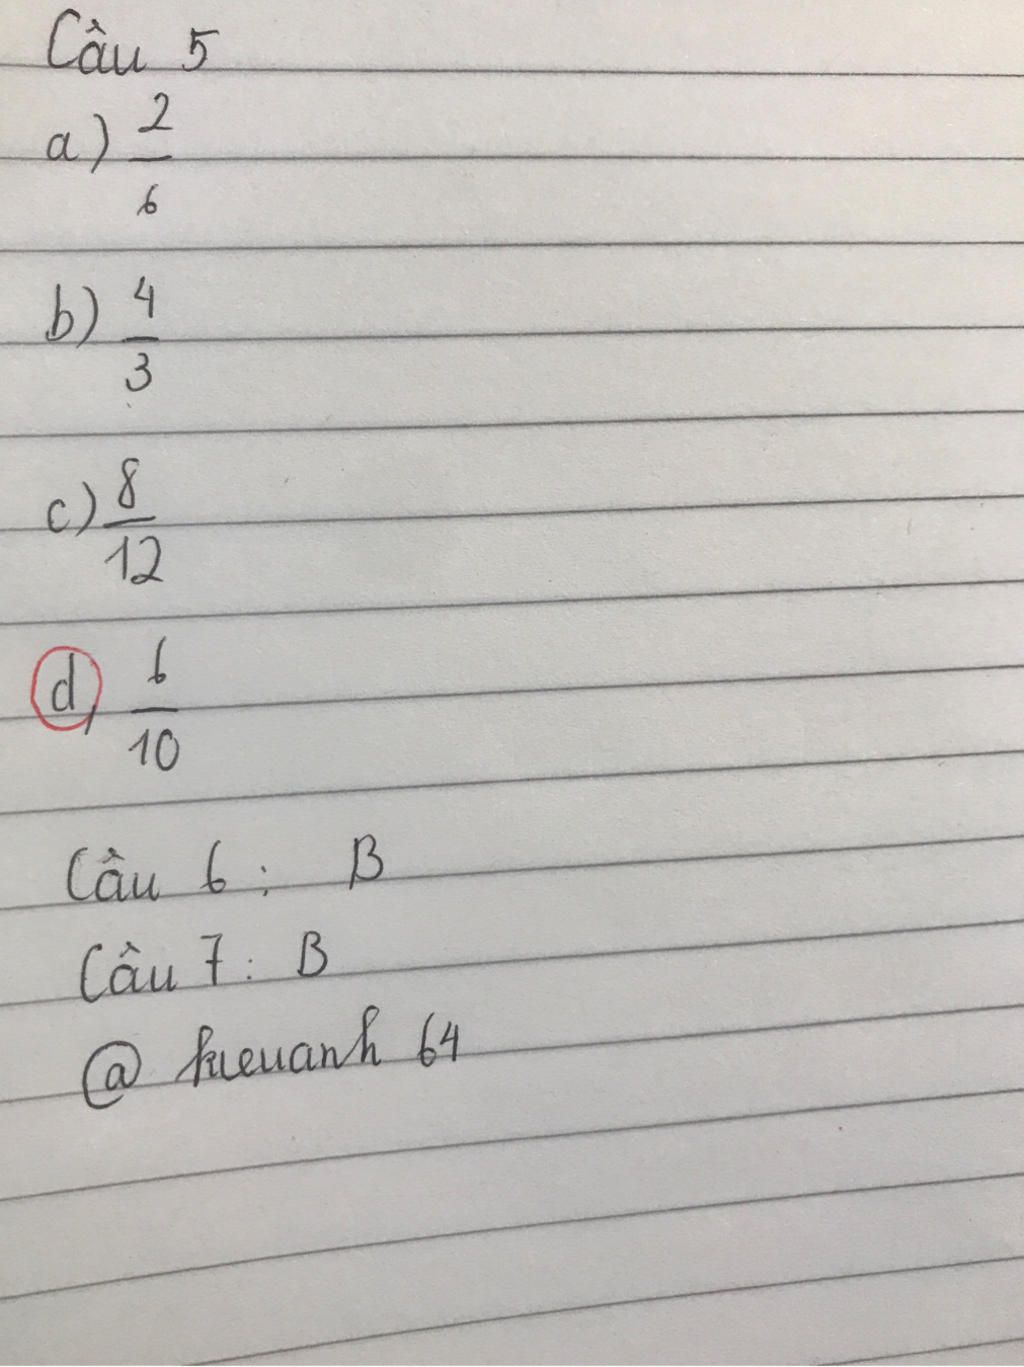 Câu 5
a) 2/6
b) 4/3
c) 8/12
d) 6/10
Câu 6: B
Câu 7: B
@ kieuanh 64